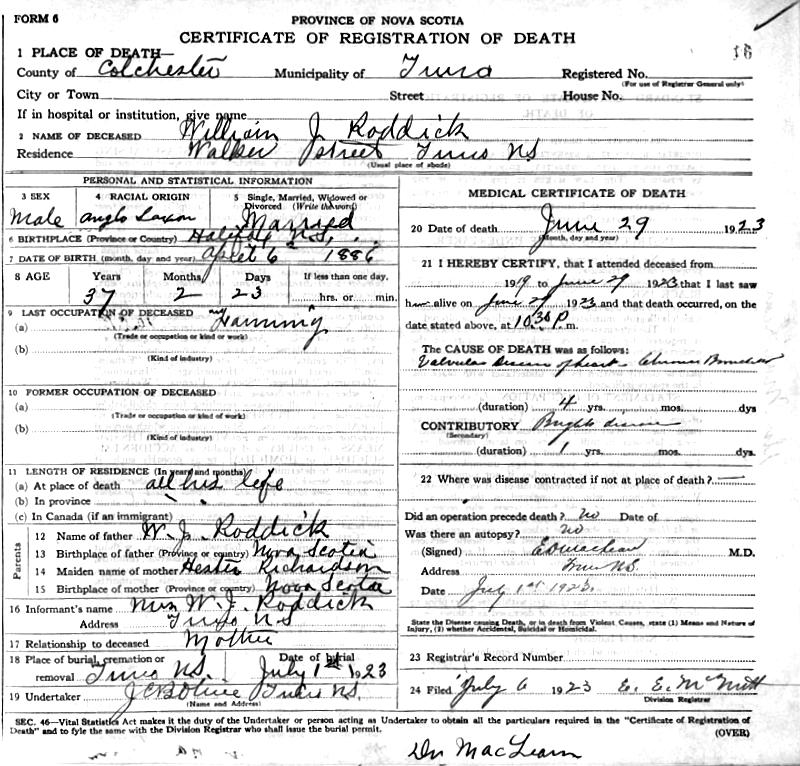 FORM 6
PROVINCE OF NOVA SCOTIA
CERTIFICATE OF REGISTRATION OF DEATH
16
1 PLACE OF DEATH—
County of Colchester Municipality of Truro Registered No.
(For use of Registrar General only)
City or Town Street House No.
If in hospital or institution, give name
2 NAME OF DECEASED William J. Roddick
Residence Walker street Truro NS
(Usual place of abode)
PERSONAL AND STATISTICAL INFORMATION
3 SEX 4 RACIAL ORIGIN 5 Single, Married, Widowed or Divorced (Write the word)
Male Anglo Saxon Married
6 BIRTHPLACE (Province or Country) Halifax N.S.
7 DATE OF BIRTH (month, day and year) April 6 1886
8 AGE Years Months Days If less than one day.
37 2 23 hrs. or min.
9 LAST OCCUPATION OF DECEASED
(a) Farming
(Trade or occupation or kind or work)
(b)
(Kind of industry)
10 FORMER OCCUPATION OF DECEASED
(a)
(Trade or occupation or kind of work)
(b)
(Kind of industry)
11 LENGTH OF RESIDENCE (In years and months)
(a) At place of death all his life
(b) In province
(c) In Canada (if an immigrant)
Parents
12 Name of father W. J. Roddick
13 Birthplace of father (Province or country) Nova Scotia
14 Maiden name of mother Hester Richardson
15 Birthplace of mother (Province or country) Nova Scotia
16 Informant's name Mrs W. J. Roddick
Address Truro NS
17 Relationship to deceased Mother
18 Place of burial, cremation or removal Truro NS. Date of burial July 1st 1923
19 Undertaker Truro NS.
(Name and Address)
MEDICAL CERTIFICATE OF DEATH
20 Date of death June 29 1923
(Month, day and year)
21 I HEREBY CERTIFY, that I attended deceased from
1919 to June 29 1923 that I last saw
him alive on June 29 1923 and that death occurred, on the
date stated above, at 10.30 P. m.
The CAUSE OF DEATH was as follows:
Valvular Disease of heart Chronic
(duration) 4 yrs. mos. dys
CONTRIBUTORY Brights disease
(Secondary)
(duration) 1 yrs. mos. dys.
22 Where was disease contracted if not at place of death?
Did an operation precede death? no Date of
Was there an autopsy? no
(Signed) M.D.
Address Truro N.S.
Date July 1st 1923
State the Disease causing Death, or in death from Violent Causes, state (1) Means and Nature of
Injury, (2) whether Accidental, Suicidal or Homicidal.
23 Registrar's Record Number
24 Filed July 6 1923 E. E. McNutt
Division Registrar
SEC. 46—Vital Statistics Act makes it the duty of the Undertaker or person acting as Undertaker to obtain all the particulars required in the "Certificate of Registration of
Death" and to fyle the same with the Division Registrar who shall issue the burial permit.
(OVER)
Dr MacLearn